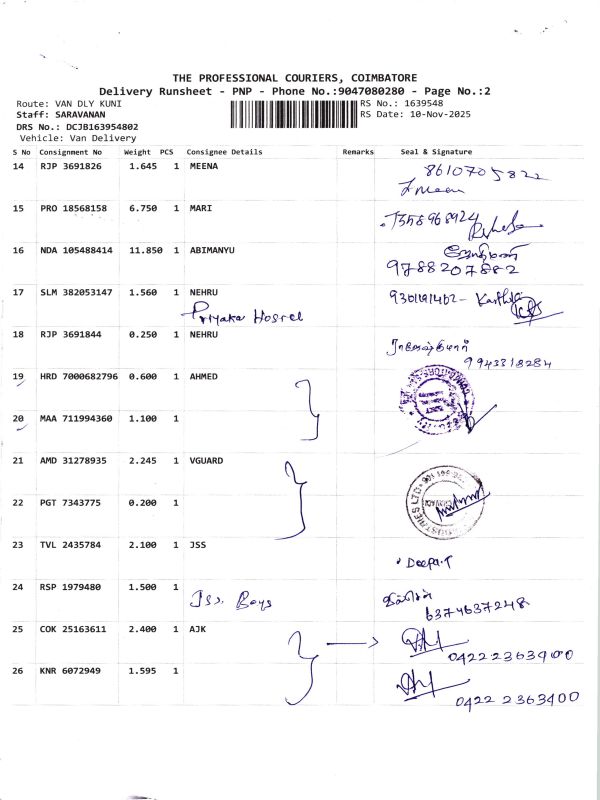 THE PROFESSIONAL COURIERS, COIMBATORE
Delivery Runsheet - PNP - Phone No.:9047080280 - Page No.:2
Route: VAN DLY KUNI RS No.: 1639548
Staff: SARAVANAN RS Date: 10-Nov-2025
DRS No.: DCJB163954802
Vehicle: Van Delivery
S No Consignment No Weight PCS Consignee Details Remarks Seal & Signature
14 RJP 3691826 1.645 1 MEENA 8610705822
15 PRO 18568158 6.750 1 MARI 7358968924
16 NDA 105488414 11.850 1 ABIMANYU
9788207882
17 SLM 382053147 1.560 1 NEHRU
Priyaka Hostel
18 RJP 3691844 0.250 1 NEHRU
9943318284
19 HRD 7000682796 0.600 1 AHMED
20 MAA 711994360 1.100 1
21 AMD 31278935 2.245 1 VGUARD
22 PGT 7343775 0.200 1
23 TVL 2435784 2.100 1 JSS
Deepa.T
24 RSP 1979480 1.500 1
Jss Boys 6374637248
25 COK 25163611 2.400 1 AJK
0422 2363400
26 KNR 6072949 1.595 1
0422 2363400